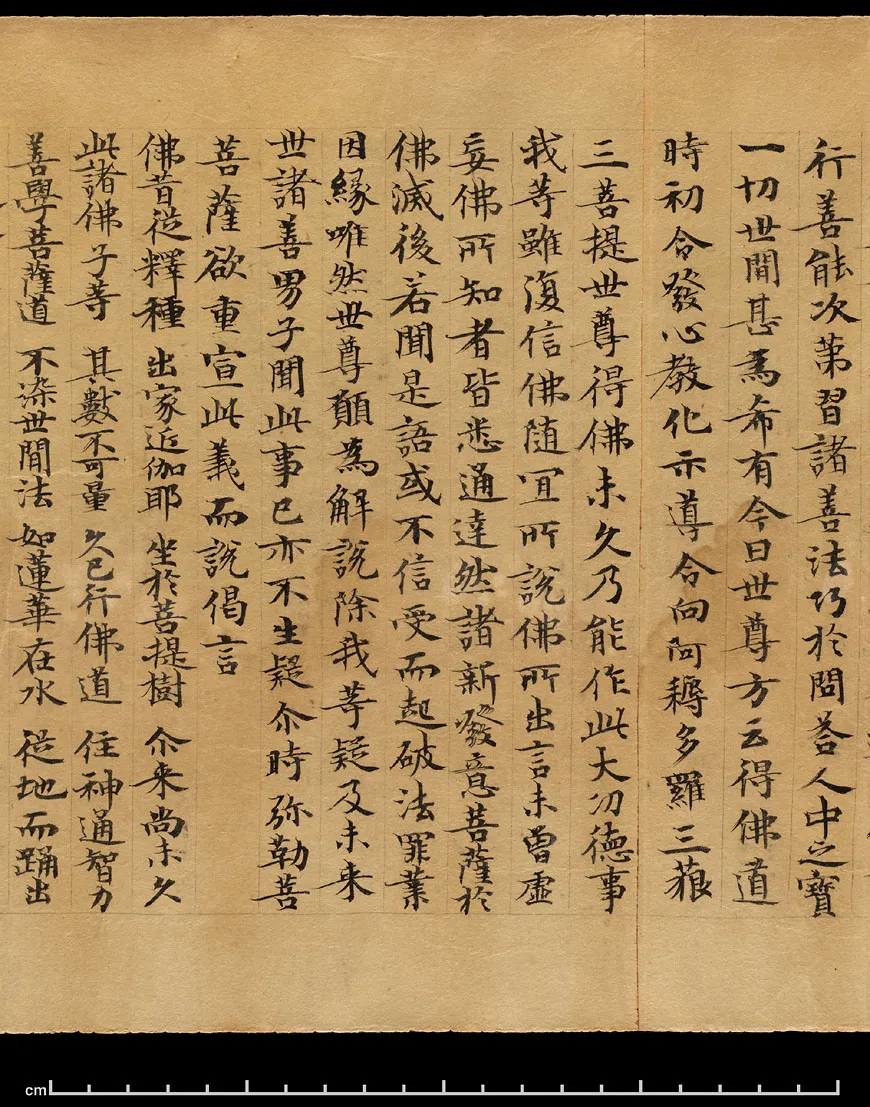 行善能次第習諸善法巧於問荅人中之寶
一切世間甚爲希有今日世尊方云得佛道
時初令發心教化示導令向阿耨多羅三藐
三菩提世尊得佛未久乃能作此大功德事
我等雖復信佛随冝所說佛所出言未曾虛
妄佛所知者皆悉通達然諸新發意菩薩於
佛滅後若聞是語或不信受而起破法罪業
因緣唯然世尊願爲解說除我等疑及未来
世諸善男子聞此事已亦不生疑尒時弥勒菩
菩薩欲重宣此義而說偈言
佛昔從釋種 出家近伽耶 坐於菩提樹 尒来尚未久
此諸佛子等 其數不可量 久已行佛道 住神通智力
善學菩薩道 不染世間法 如蓮華在水 從地而踊出
cm